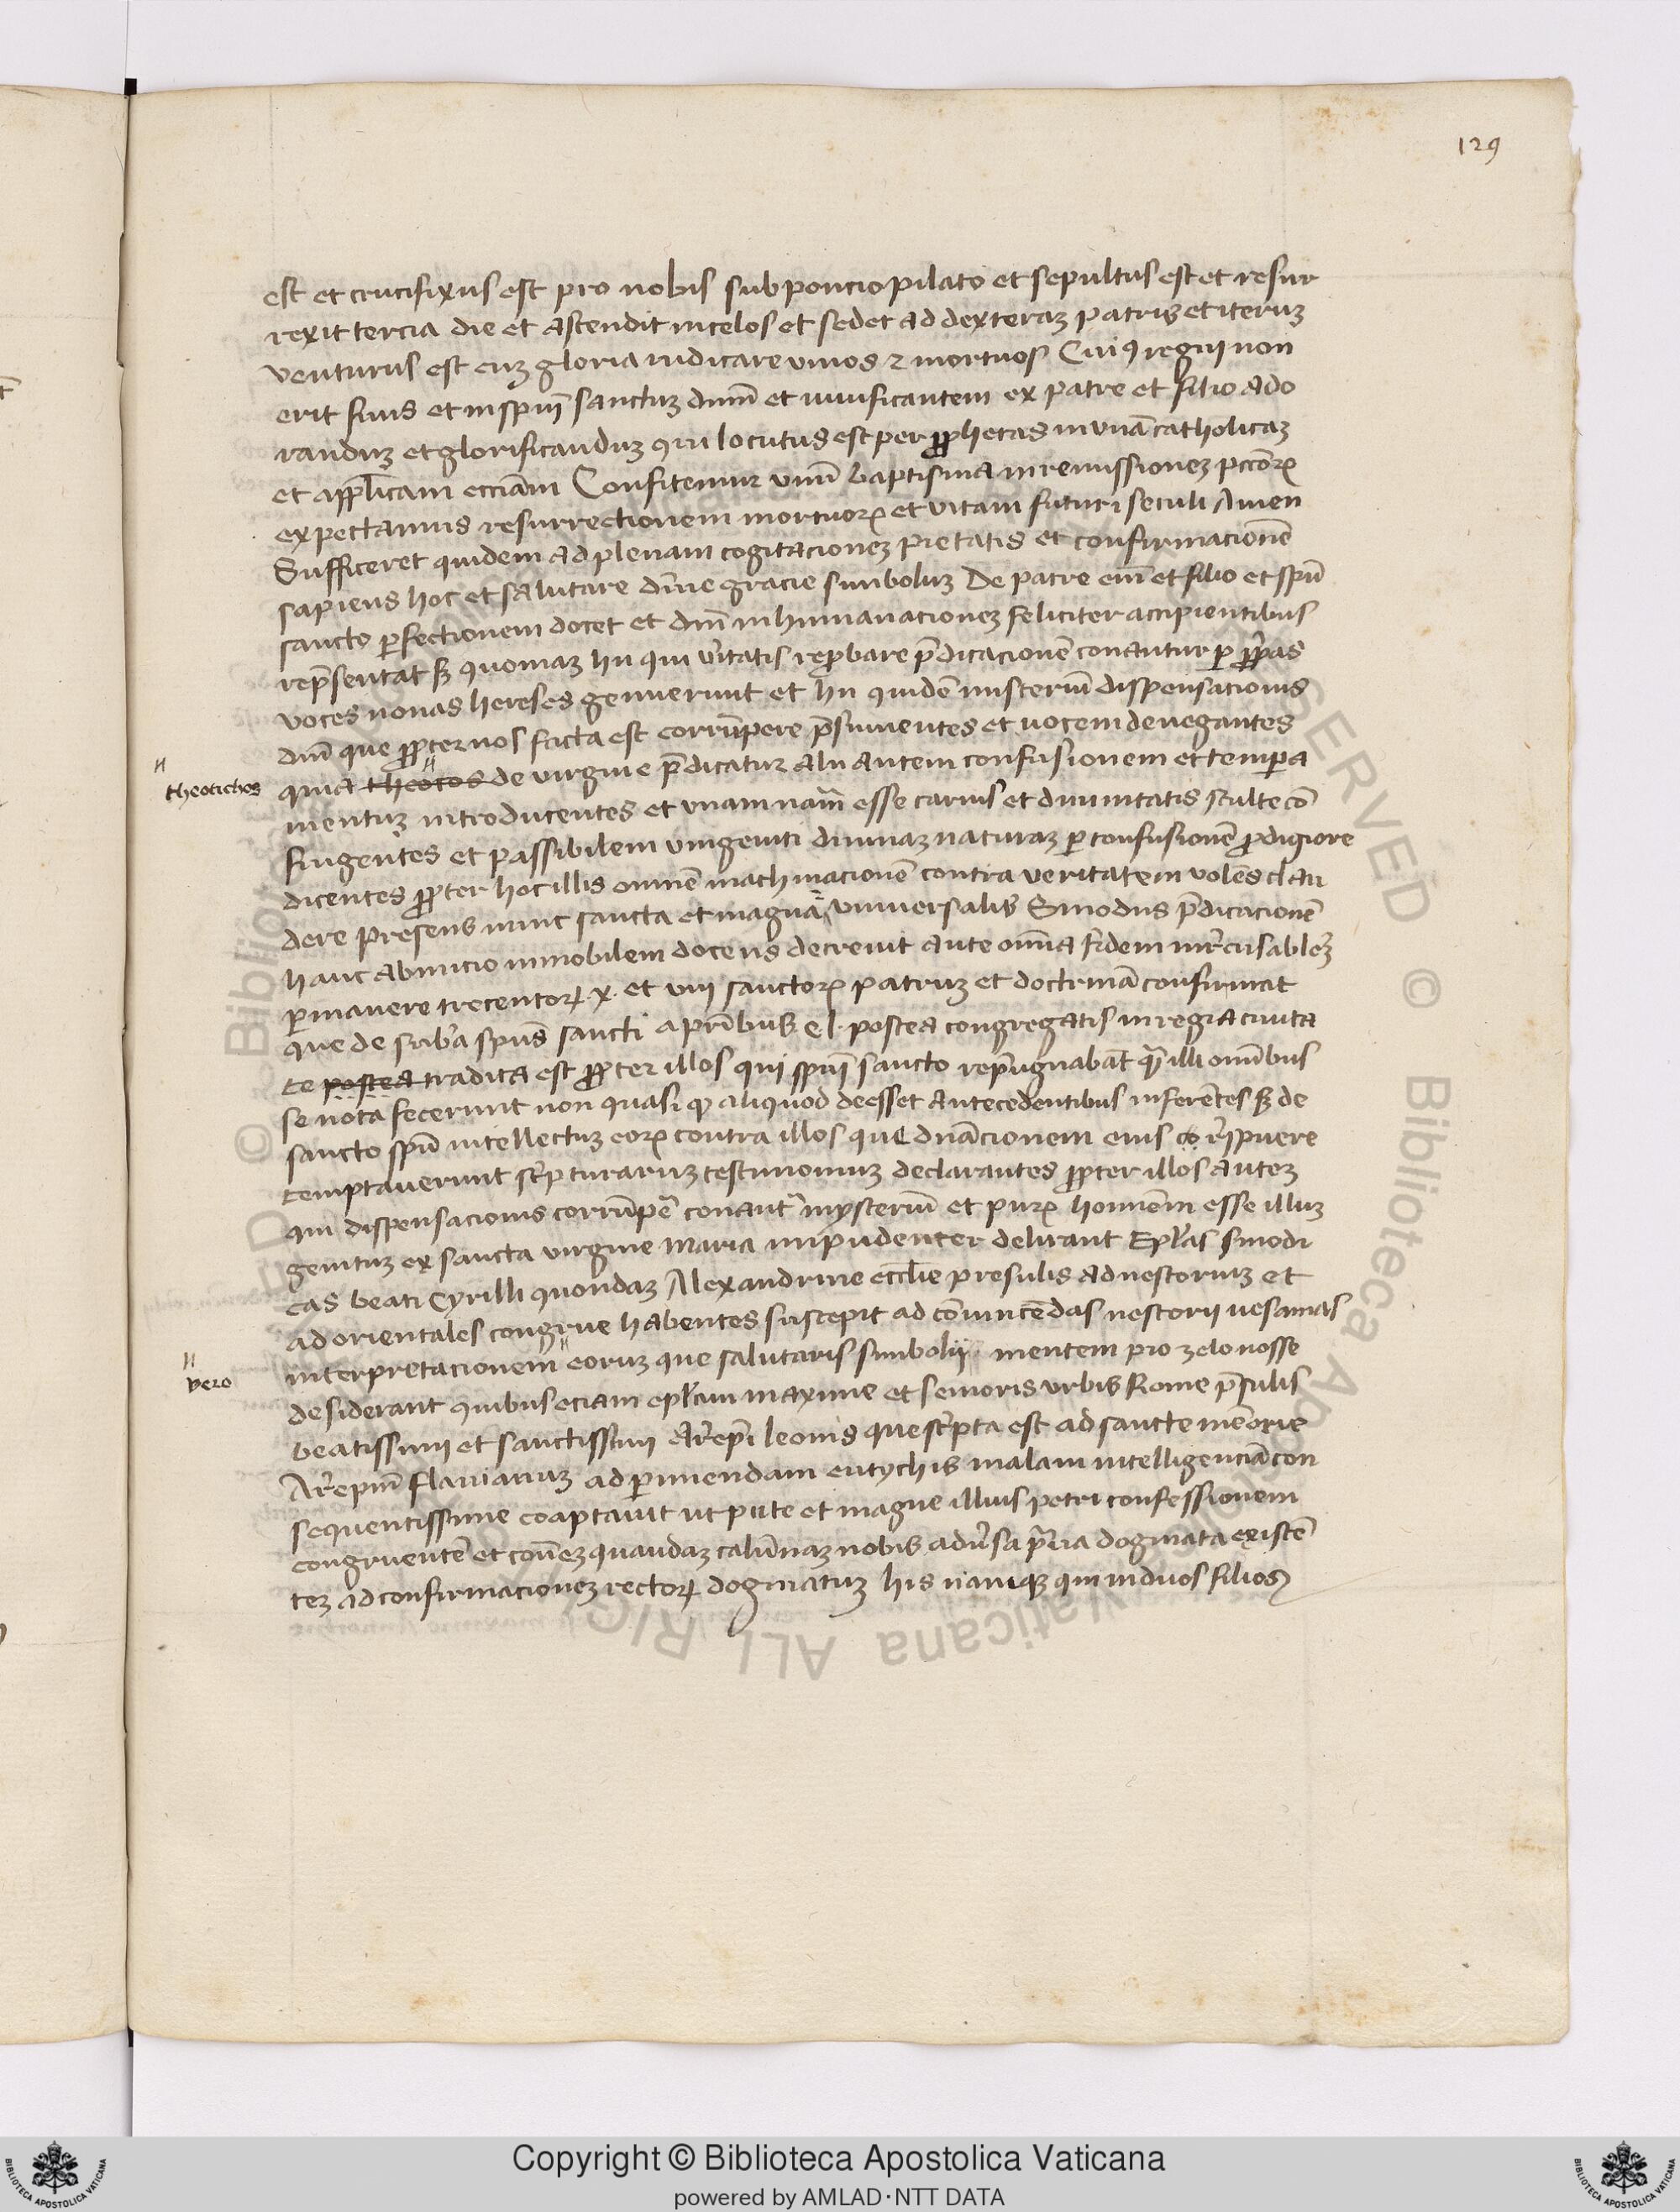 129
est et crucifixus est pro nobis sub poncio pilato et sepultus est et resur
rexit tercia die et ascendit in celos et sedet ad dexteraꝫ patris et iteruꝫ
venturus est cuꝫ gloria iudicare viuos ⁊ mortuos Cuiꝯ regni non
erit finis et in spm̄ sanctuꝫ dnm̄ et viuificantem ex patre et filio ado
randuꝫ et glorificanduꝫ qui locutus est per ꝓphetas in vnā catholicaꝫ
et applicam eccīam Confitemur vnū baptisma in remissioneꝫ pccōꝝ
expectamus resurrectionem mortuoꝝ et vitam futuri seculi Amen
Sufficeret quidem ad plenam cogitacioneꝫ pietatis et confirmacionē
sapiens hoc et salutare diuīe gracie simboluꝫ De patre enī et filio et spū
sancto ꝑfectionem docet et dnī inhumanacioneꝫ feliciter accipientibus
rep̄sentat sꝫ quoniaꝫ hii qui v̄itatis reꝓbare p̄dicacionē conantur ꝑ ꝓp̄as
voces nouas hereses genuerunt et hii quidē misteriū dispensacionis
dnī que ꝓpter nos facta est corrūpere p̄sumentes et vocem denegantes
theotichos
quia theocos de virgine p̄dicatur alii autem confusionem et tempera
mentuꝫ introducentes et vnam nām esse carnis et diuinitatis stulte cō
fingentes et passibilem vnigeniti diuinaꝫ naturaꝫ ꝑ confusionē ꝓdigiore
dicentes ꝓpter hoc illis omnē machinacionē contra veritatem volēs clau
dere presens nunc sancta et magna vniuersalis Sinodus p̄dicacionē
hanc ab inicio inmobilem docens decreuit ante omīa fidem inr̄cusablēꝫ
ꝑmanere trecentoꝝ .x. et viij sanctoꝝ patruꝫ et doctrinā confirmat
que de sub̄a spūs sancti a prībus c l. postea congregatis in regia ciuita
te postea tradita est ꝓpter illos qui spūi sancto repugnabāt quā illi omībus
se nota fecerunt non quasi ꝙ aliquod deesset antecedentibus inferētes sꝫ de
sancto spū intellectuꝫ eoꝝ contra illos que dnācionem eius co r̄ipuere
temptauerunt sc̄pturaruꝫ testimoniuꝫ declarantes ꝓpter illos auteꝫ
qui dispensacionis corrūpē conant̄ mysteriū et puꝝ hominēm esse illuꝫ
genituꝫ ex sancta virgine maria impudenter delirant Ep̄las sinodi
cas beati Cyrilli quondaꝫ Alexandrine eccl̄ie presulis ad nestoriuꝫ et
ad orientales congrue habentes suscepit ad conuincēdas nestorij vesanias
interpretacionem eoruꝫ que salutaris simbolij mentem pro zelo nosse
vero
desiderant quibus eciam ep̄lam maxime et senioris vrbis Rome p̄sulis
beatissimi et sanctissimi Ar̄epi leonis que sc̄pta est ad sancte memorie
Ar̄epm̄ flauianuꝫ ad ꝑimendam eutychis malam intelligenciā con
sequentissime coaptauit vt pute et magne illius petri confessionem
congruentē et coem̄ꝫ quandaꝫ calumnaꝫ nobis adūsa praua dogmata existē
teꝫ ad confirmacioneꝫ rectoꝝ dogmatuꝫ his namqꝫ qui in duos filios
Copyright © Biblioteca Apostolica Vaticana
powered by AMLAD·NTT DATA